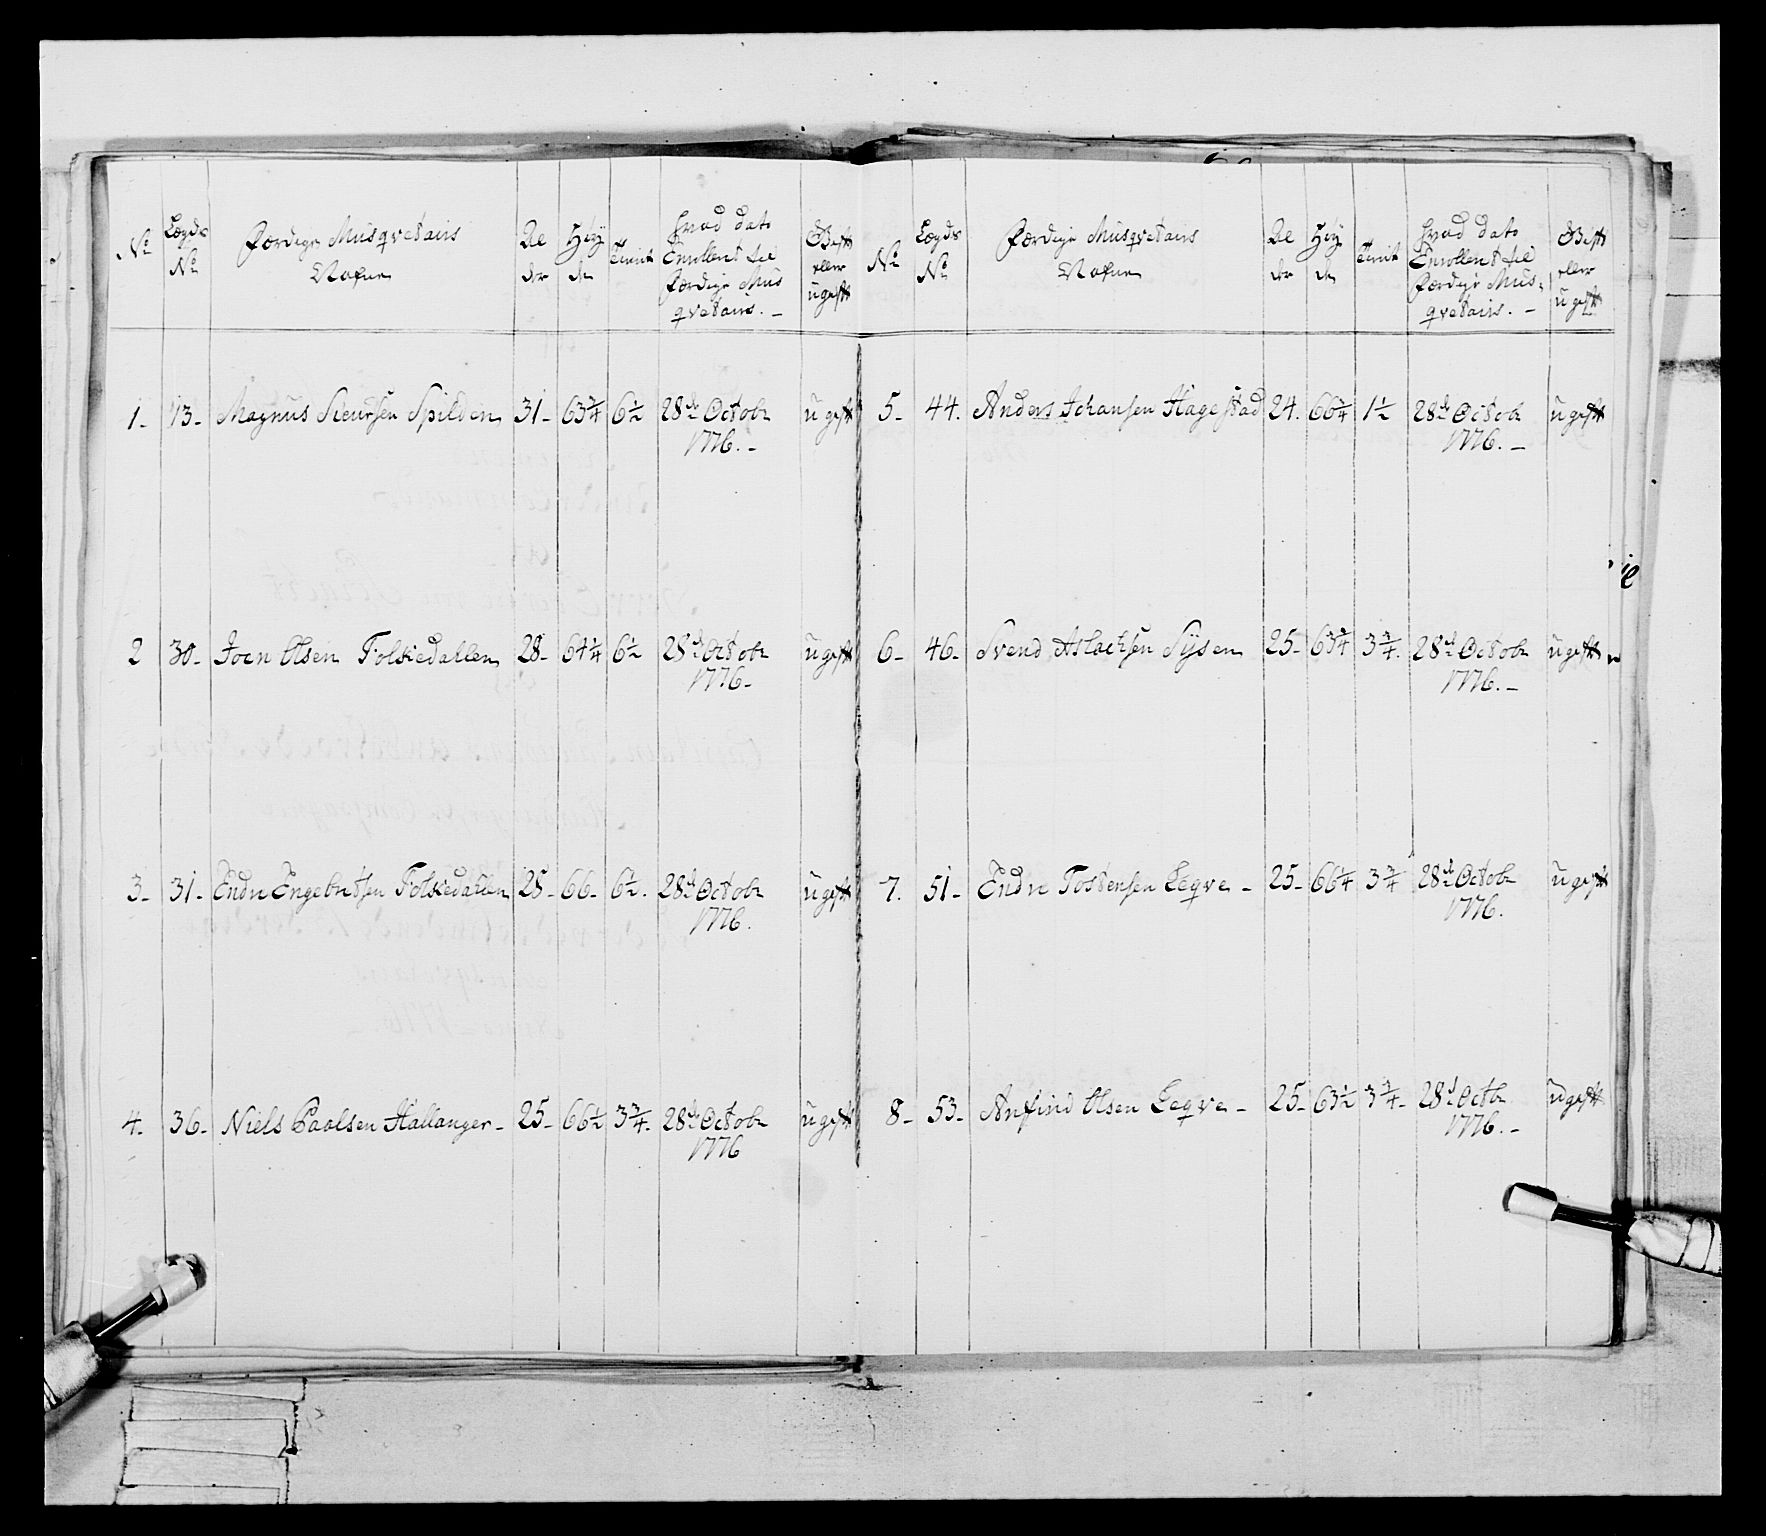 No Lægds No Færdige Musqvetairs Nafne Al der Høy de Tient Hvad dato Enrollert til Færdige Mus qvetairs. - Gift eller ugift
1. 13. Magnus Siursen Spilden 31. 63 3/4 6 1/2 28de Octobr 1776. - ugift
2 30. Joen Olsen Folkedallen 28. 64 1/4 6 1/2 28de Octobr 1776. ugift
3. 31. Endre Engebretsen Folkedallen 28. 66. 6 1/2. 28de Octobr 1776. ugift
4. 36. Niels Paalsen Hallanger. 25. 66 1/2 3 3/4. 28de Octobr 1776 ugift
No Lægds No Færdige Musqvetairs Nafne Al der Høy de Tient Hvad dato Enrollert til Færdige Mus= qvetairs. - Gift eller ugift
5. 44. Anders Johansen Hagestad 24. 66 3/4 1 1/2 28de Octobr 1776. - ugift
6. 46. Svend Aslachsen Sysen 25. 63 3/4 3 3/4. 28de Octobr 1776. - ugift
7. 51. Endre Tostensen Leqve - 25. 66 1/4 3 3/4 28de Octobr 1776. ugift
8. 53. Anfind Olsen Leqve - 25. 63 1/2 3 3/4. 28de Octbr 1776. - ugift